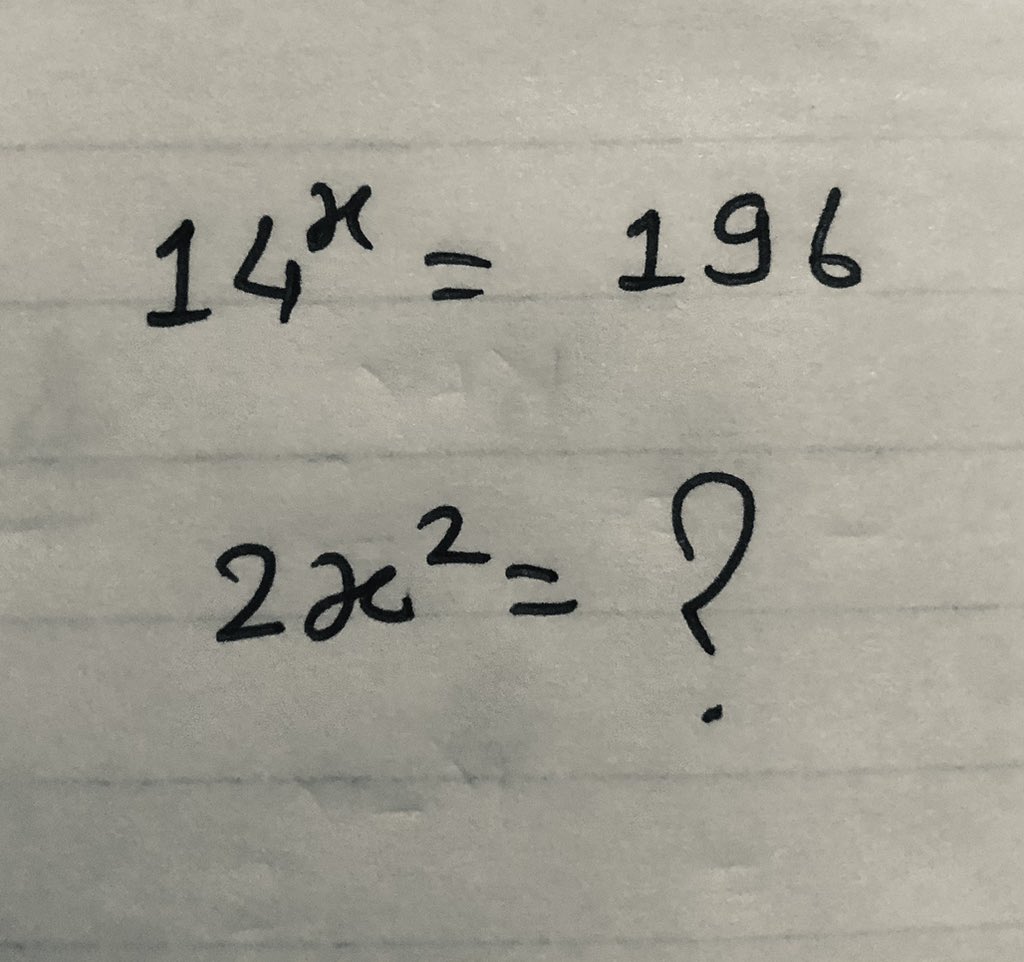 14ˣ = 196
2x² = ?